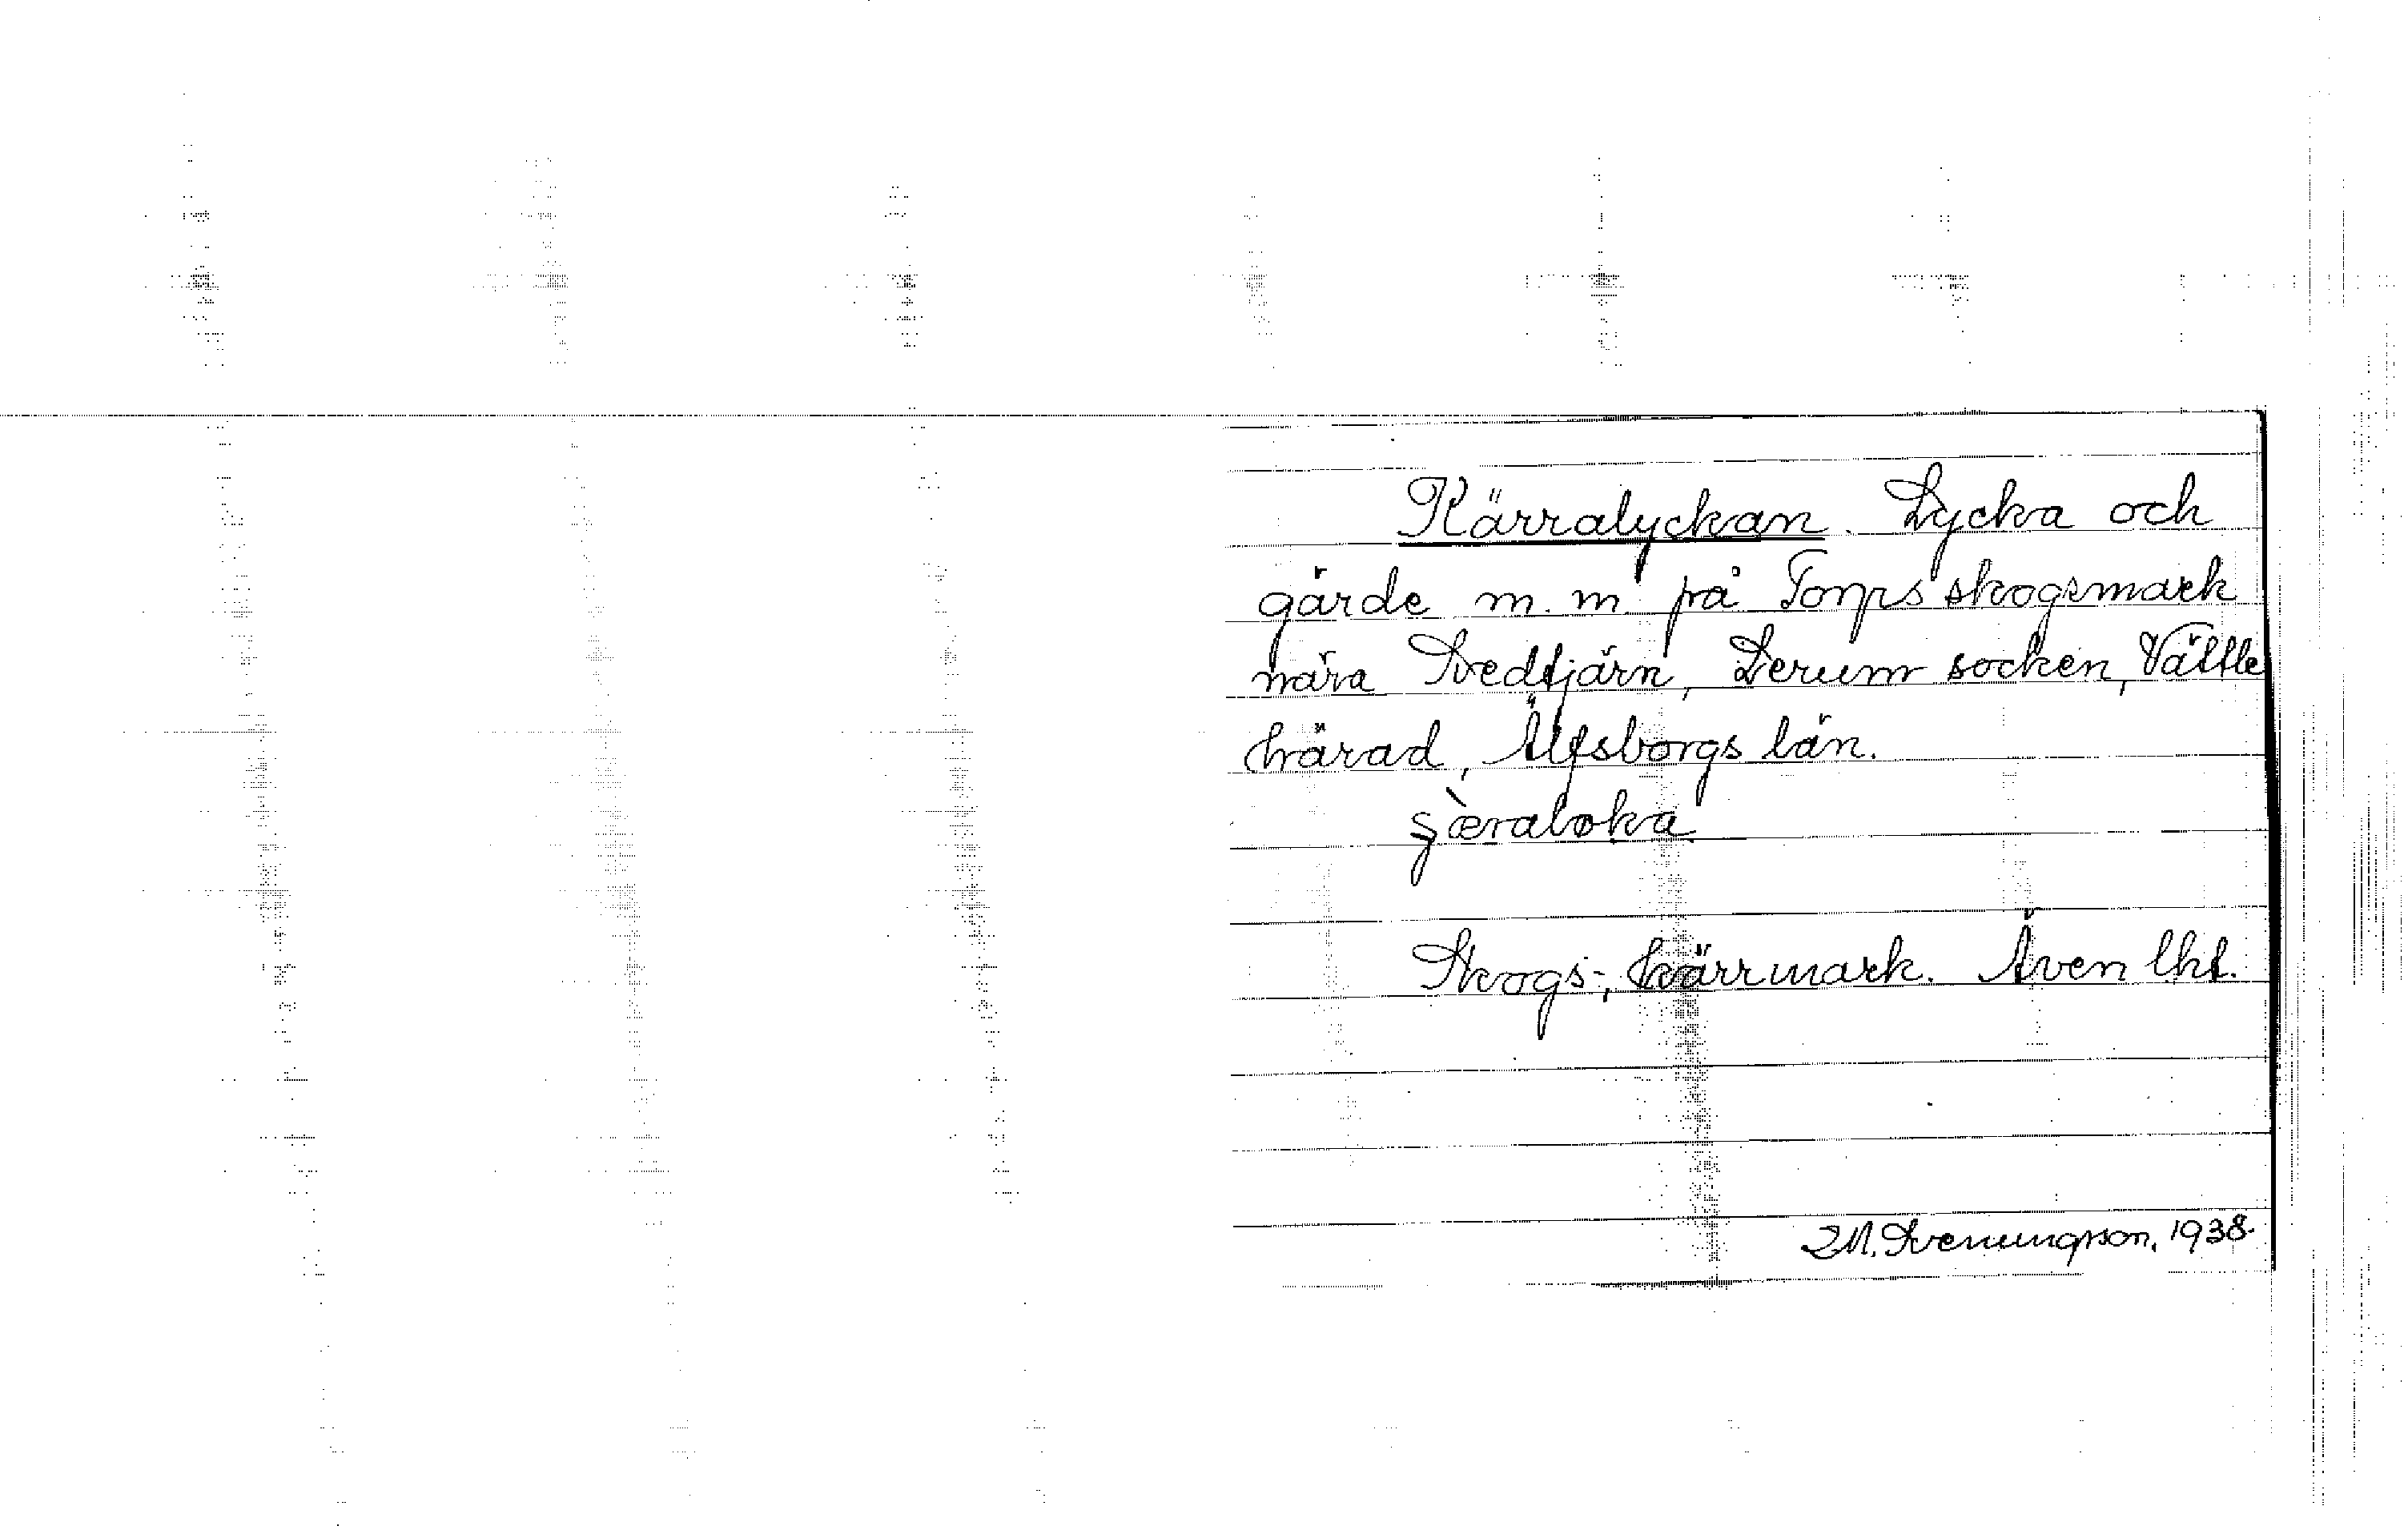 Kärralyckan. Lycka och
gärde m.m. på Torps skogsmark
nära Svedtjärn, Lerum socken, Vättle
härad, Älfsborgs län.
Skogs-, kärrmark. Även lht.
M. Svenungsson, 1938.